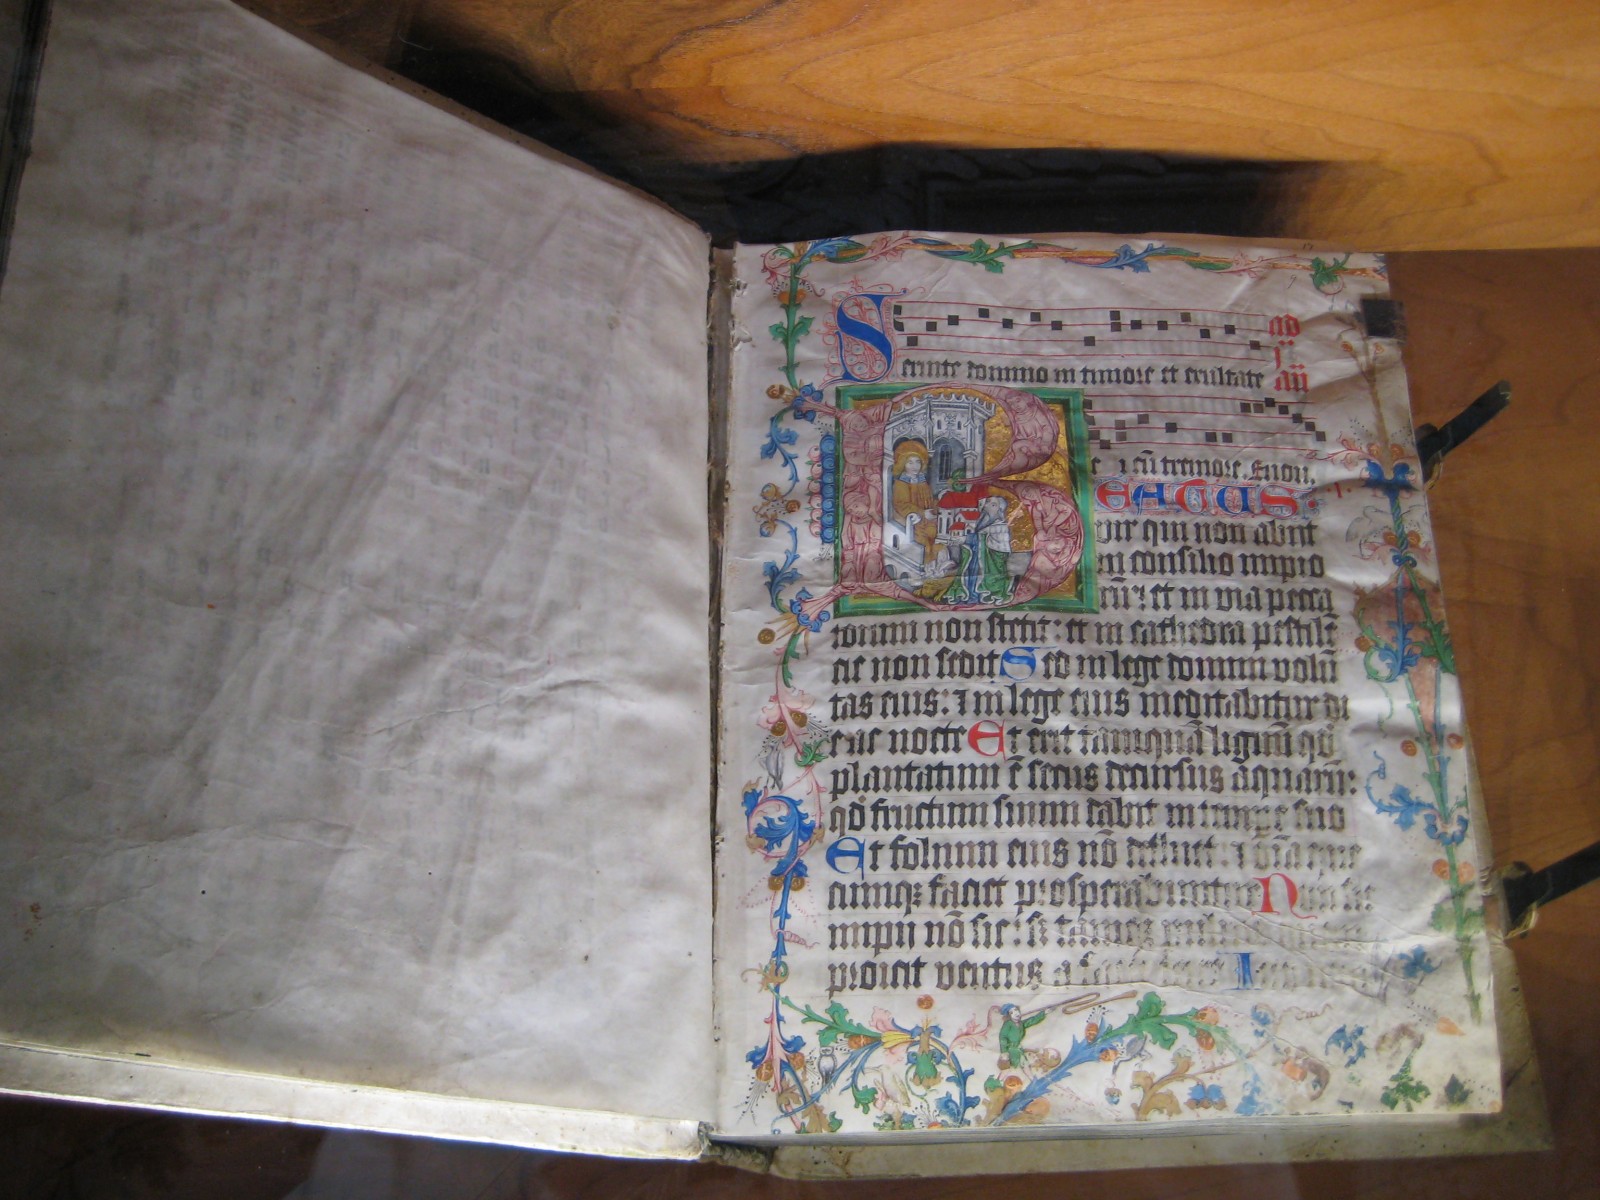 Seruite domino in timore et exultate
ad
p̄
añ
e ⁊ cū tremore. Euou.
BEATUS
vir qui non abijt
in consilio impio
rū: et in via pecca
torum non stetit: et in cathedra pestilē
cie non sedit Sed in lege domini volū
tas eius: ⁊ in lege eius meditabitur di
e ac nocte Et erit tamquā lignū qd̄
plantatum ē secus decursus aquarū:
qd̄ fructum suum dabit in tempe suo
Et folium eius nō defluet: ⁊ oīa que
cumqꝫ faciet prosperabuntur Non sic
impij nō sic: sꝫ tamqꝫ puluis
proicit ventus a facie terre I